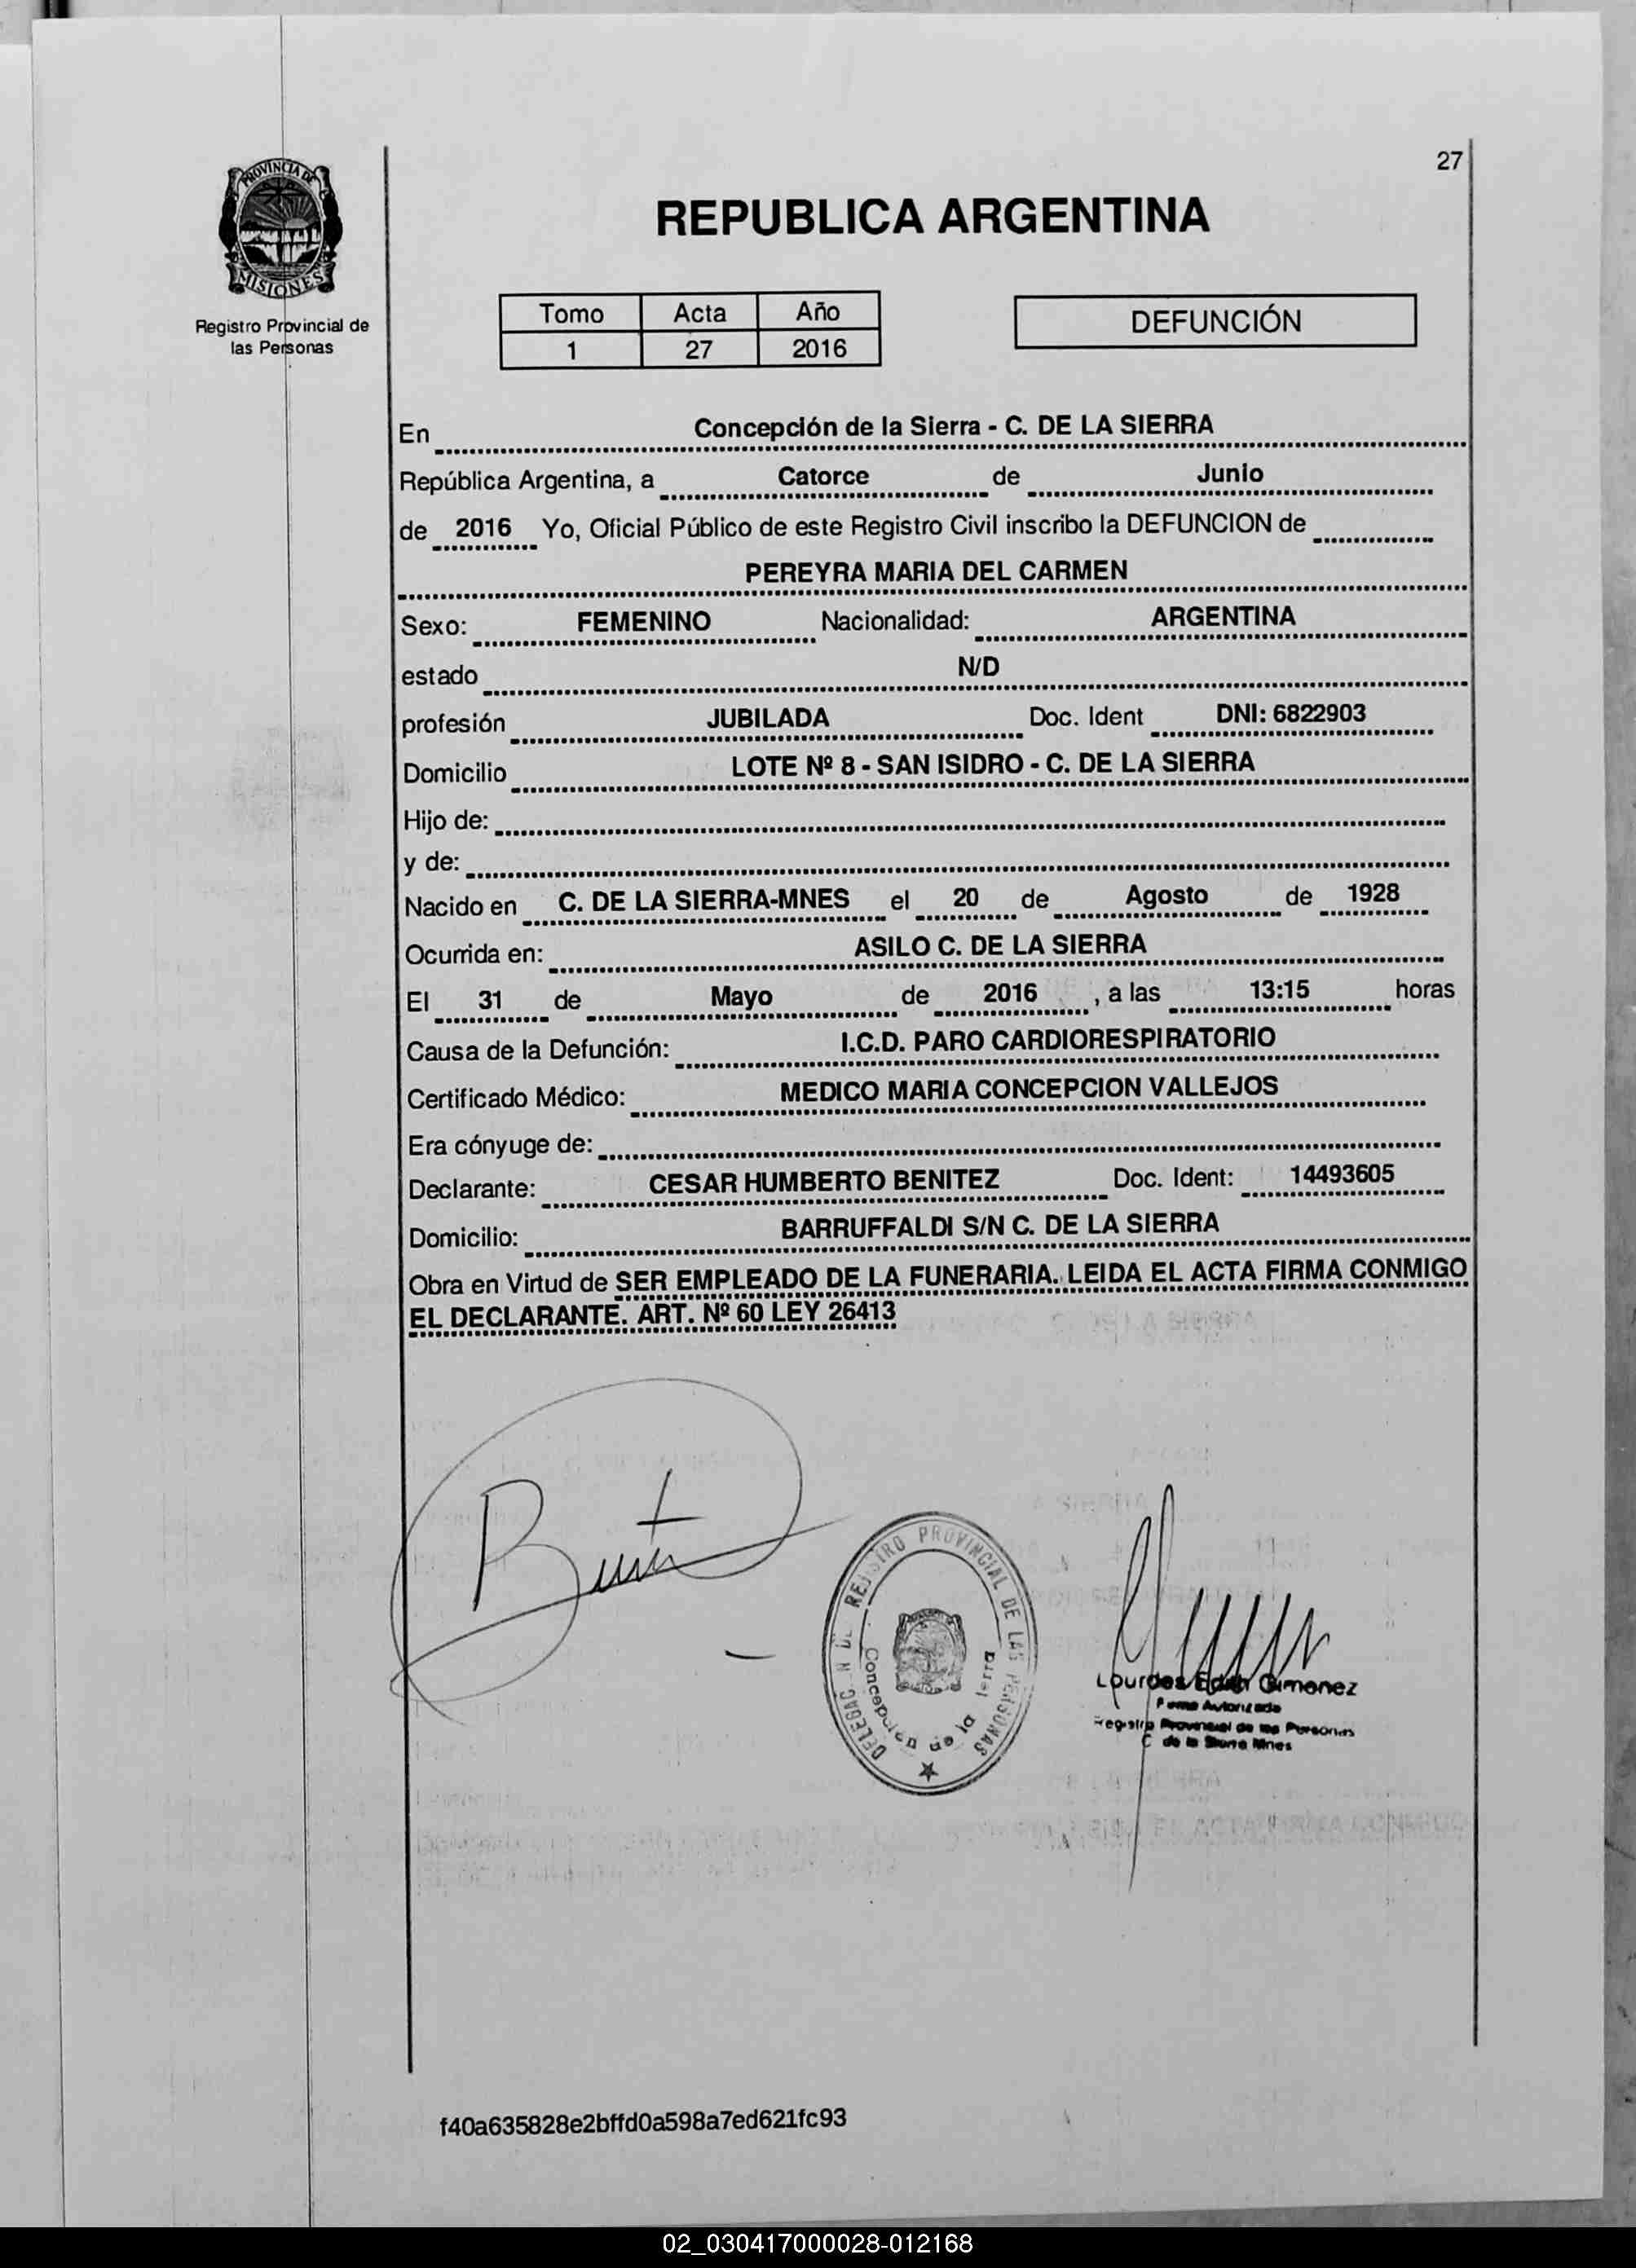 27
PROVINCIA DE
MISIONES
Registro Provincial de
las Personas
REPUBLICA ARGENTINA
Tomo Acta Año
1 27 2016
DEFUNCIÓN
En Concepción de la Sierra - C. DE LA SIERRA
República Argentina, a Catorce de Junio
de 2016 Yo, Oficial Público de este Registro Civil inscribo la DEFUNCION de
PEREYRA MARIA DEL CARMEN
Sexo: FEMENINO Nacionalidad: ARGENTINA
estado N/D
profesión JUBILADA Doc. Ident DNI: 6822903
Domicilio LOTE Nº 8 - SAN ISIDRO - C. DE LA SIERRA
Hijo de:
y de:
Nacido en C. DE LA SIERRA-MNES el 20 de Agosto de 1928
Ocurrida en: ASILO C. DE LA SIERRA
El 31 de Mayo de 2016 , a las 13:15 horas
Causa de la Defunción: I.C.D. PARO CARDIORESPIRATORIO
Certificado Médico: MEDICO MARIA CONCEPCION VALLEJOS
Era cónyuge de:
Declarante: CESAR HUMBERTO BENITEZ Doc. Ident: 14493605
Domicilio: BARRUFFALDI S/N C. DE LA SIERRA
Obra en Virtud de SER EMPLEADO DE LA FUNERARIA. LEIDA EL ACTA FIRMA CONMIGO
EL DECLARANTE. ART. Nº 60 LEY 26413
REGISTRO PROVINCIAL DE LAS PERSONAS
Concepción de la
Lourdes Edith Gimenez
Firma Autorizada
Registro Provincial de las Personas
C de la Sierra Mnes
f40a635828e2bffd0a598a7ed621fc93
02_030417000028-012168